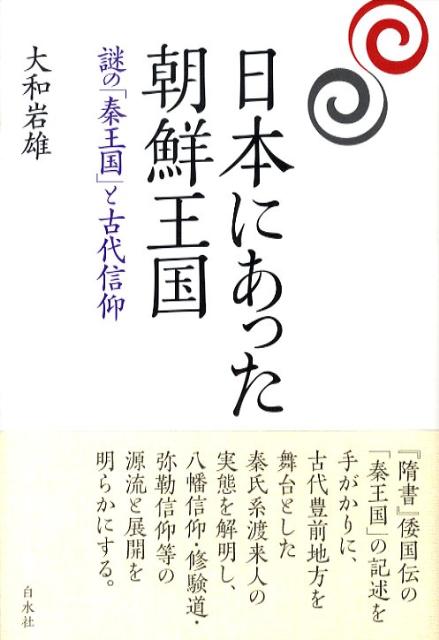 日本にあった
朝鮮王国
謎の「秦王国」と古代信仰
大和岩雄
『隋書』倭国伝の
「秦王国」の記述を
手がかりに、
古代豊前地方を
舞台とした
秦氏系渡来人の
実態を解明し、
八幡信仰・修験道・
弥勒信仰等の
源流と展開を
明らかにする。
白水社